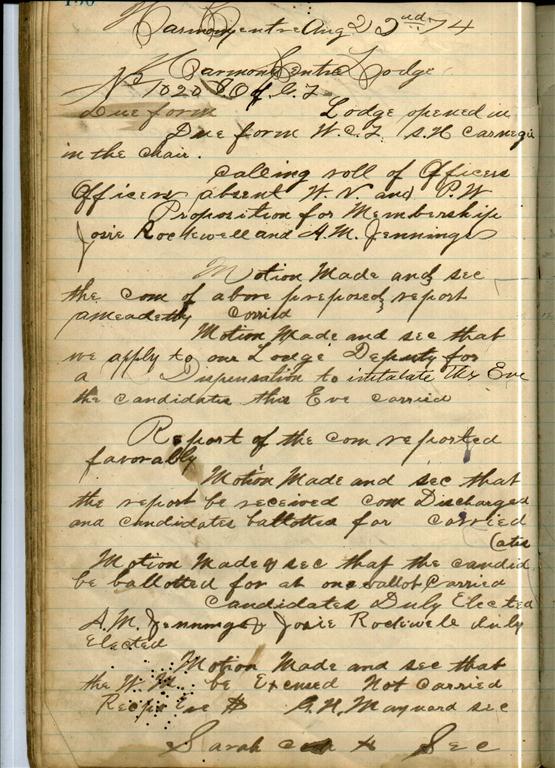 Harmony Centre Aug 22nd 74
Harmony Centre Lodge
No 1020 I O of G. T
Due form Lodge opened in
Due form W. C. T. S. H Carnegie
in the chair.
Calling roll of Officers
Officers absent W. V and P. W
Proposition for Membership
Josie Rockewell and A. M. Jennings
Motion Made and sec
the com of above preposed report
ameadetly Corried
Motion Made and sec that
we apply to our Lodge Deputy for
a Dispensation to intitatate This Eve
the candidates this Eve carried
Report of the com reported
favorably
Motion Made and sec that
the report be received com Discharged
and candidates ballotted for carried
(ates
Motion Made & sec that the candid
be ballotted for at one ballot Carried
Candidates Duly Elected
A. M. Jennings & Josie Rockwell duly
Elected
Motion Made and sec that
the W. M be Excused Not Carried
Recpt Eve $ G. N. Maynard sec
Sarah Sec